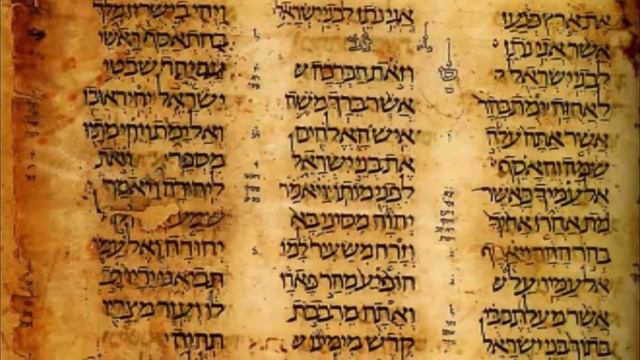 את ארץ כנען
אשר אני נתן
לבני ישראל
לאחזה ומת בהר
אשר אתה עלה
שמה והאסף
אל עמיך כאשר
מת אהרן אחיך
בהר ההר ויאסף
אל עמיו על
אשר מעלתם בי
בתוך בני ישראל
אני נתן לבני ישראל
וזאת הברכה
אשר ברך משה
איש האלהים
את בני ישראל
לפני מותו ויאמר
יהוה מסיני בא
וזרח משעיר למו
הופיע מהר פארן
ואתה מרבבת
קדש מימינו
ויהי בישרון מלך
בהתאסף ראשי
עם יחד שבטי
ישראל יחי ראובן
ואל ימת ויהי מתיו
מספר וזאת
ליהודה ויאמר
שמע
יהודה ואל עמו
תביאנו ידיו רב
לו ועזר מצריו
תהיה